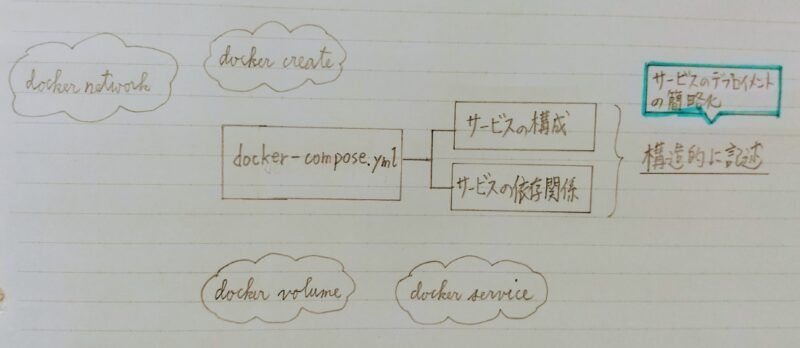 docker create
docker network
サービスのデプロイメント
の簡略化
サービスの構成
docker-compose.yml
構造的に記述
サービスの依存関係
docker volume
docker service